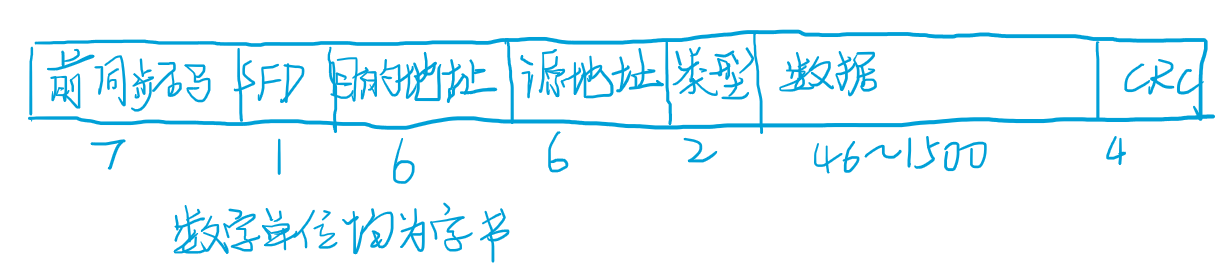 前同步码 SFD 目的地址 源地址 类型 数据 CRC
7 1 6 6 2 46~1500 4
数字单位均为字节